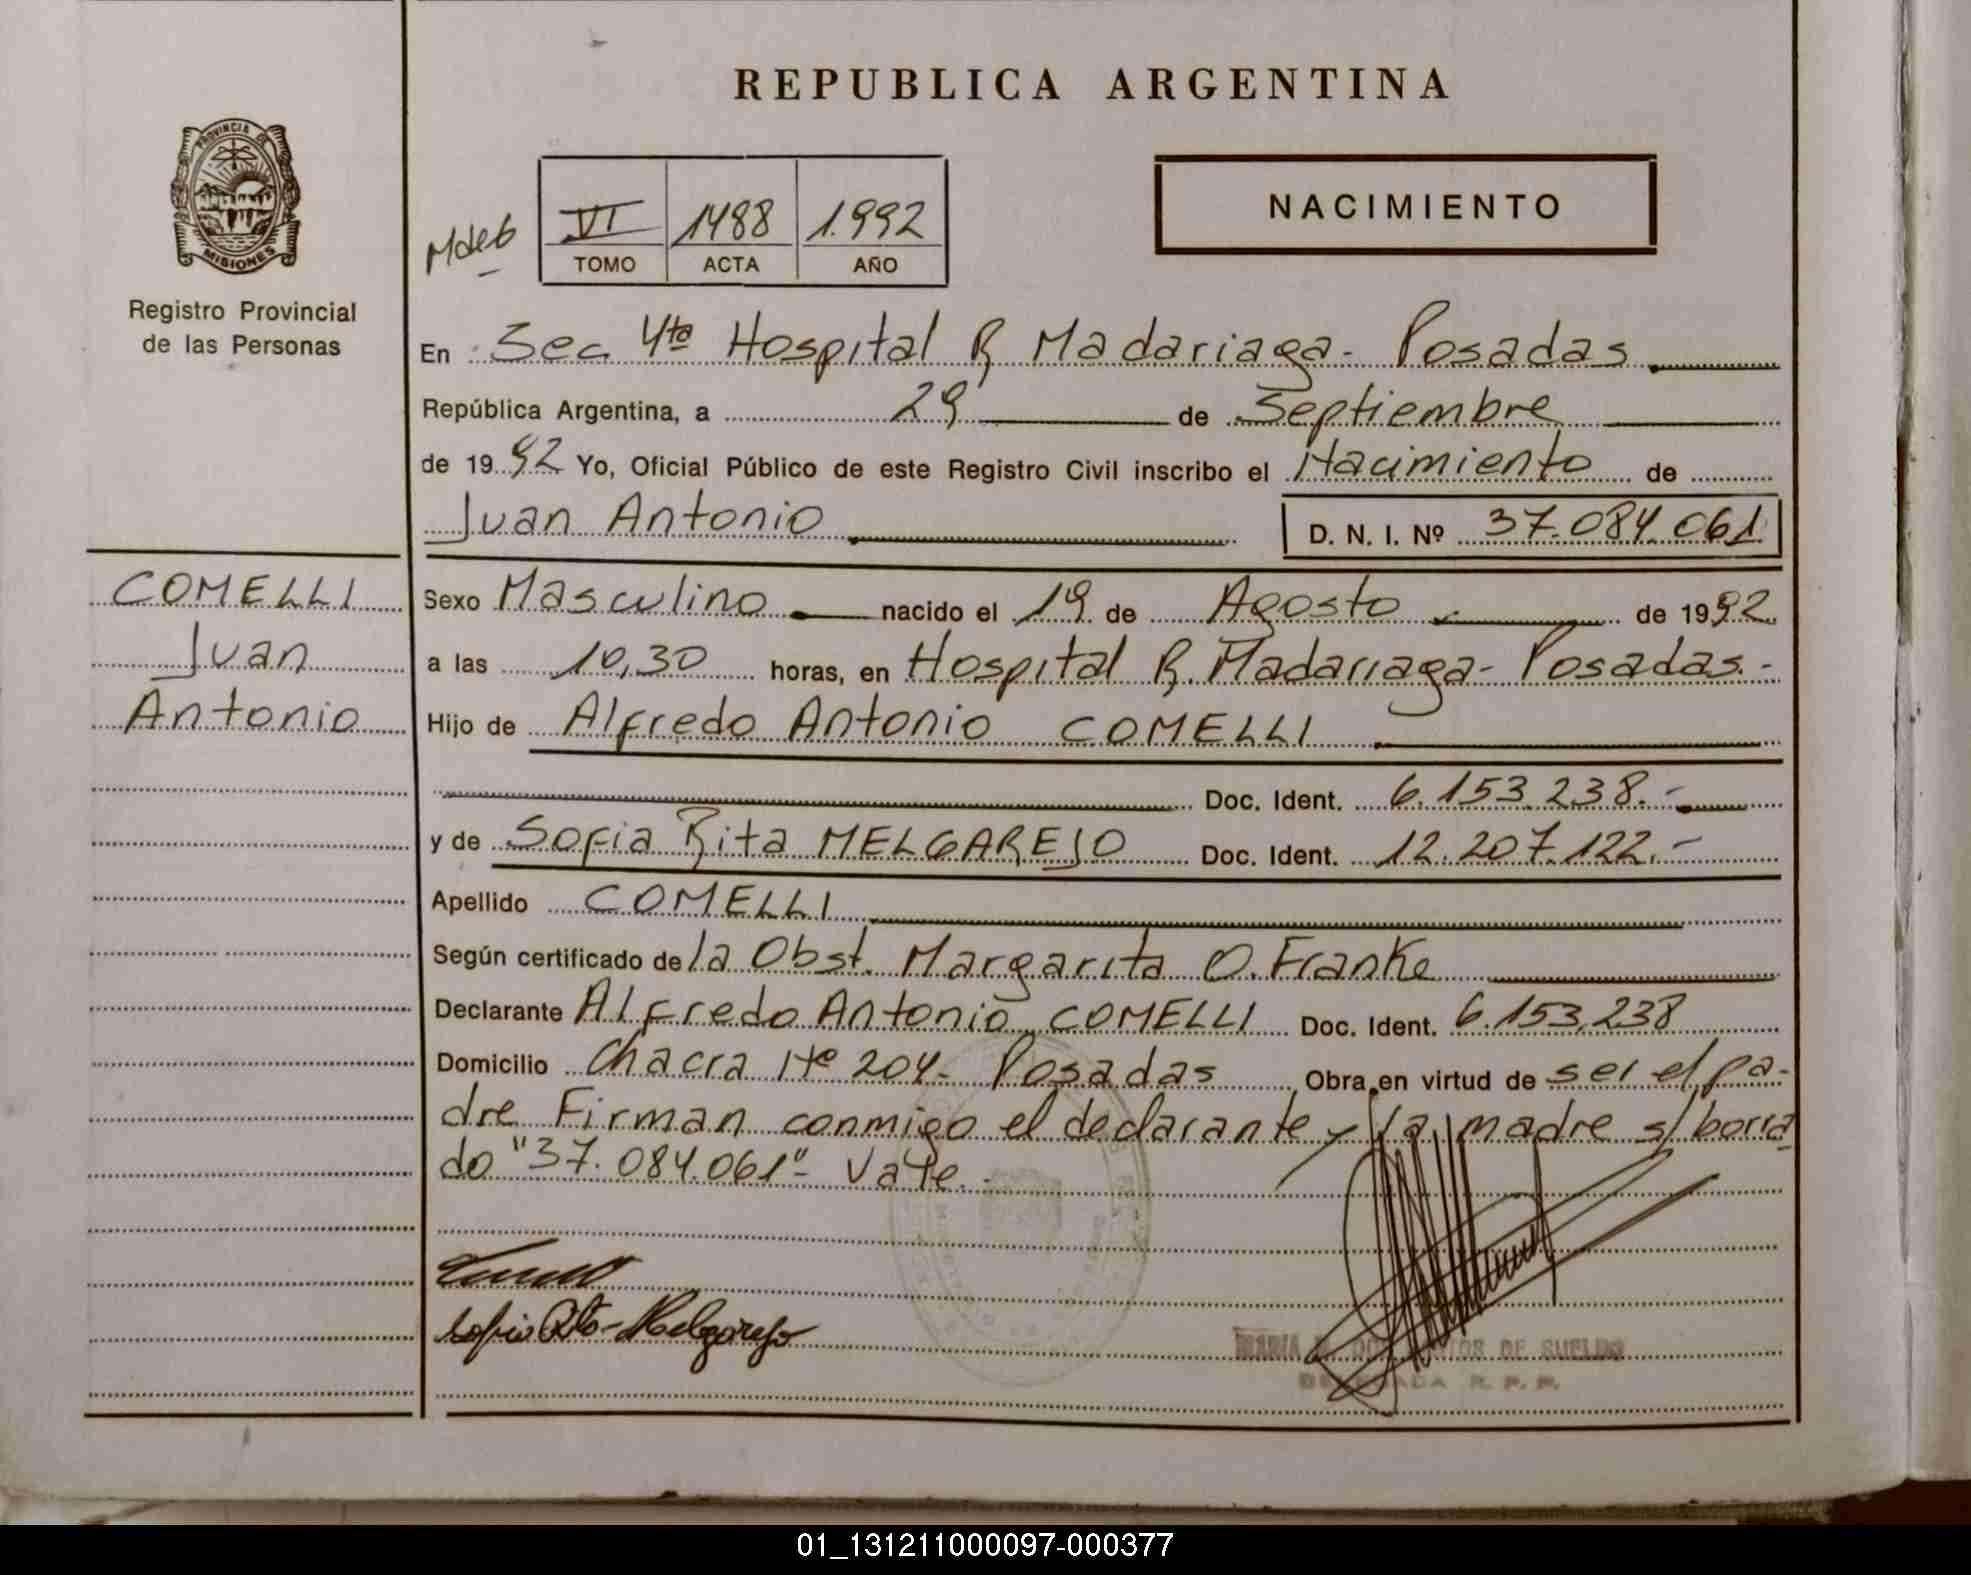 REPUBLICA ARGENTINA
PROVINCIA DE
MISIONES
Registro Provincial
de las Personas
VI 1488 1.992
TOMO ACTA AÑO
NACIMIENTO
En Sec 4ta Hospital R Madariaga - Posadas
República Argentina, a 29 de Septiembre
de 1992 Yo, Oficial Público de este Registro Civil inscribo el Nacimiento de
Juan Antonio D. N. I. Nº 37.084.061
COMELLI
Juan
Antonio
Sexo Masculino nacido el 19 de Agosto de 1992
a las 10,30 horas, en Hospital R. Madariaga - Posadas.-
Hijo de Alfredo Antonio COMELLI
Doc. Ident. 6.153.238.-
y de Sofia Rita MELGAREJO Doc. Ident. 12.207.122.-
Apellido COMELLI
Según certificado de la Obst. Margarita O. Franke
Declarante Alfredo Antonio COMELLI Doc. Ident. 6.153.238
Domicilio Chacra Nº 204- Posadas Obra en virtud de ser el pa-
dre Firman conmigo el declarante y la madre s/ borra
do "37.084.061"- Vale.-
Sofia Rita Melgarejo
MARIA DE SUELDO
R. P. P.
01_131211000097-000377